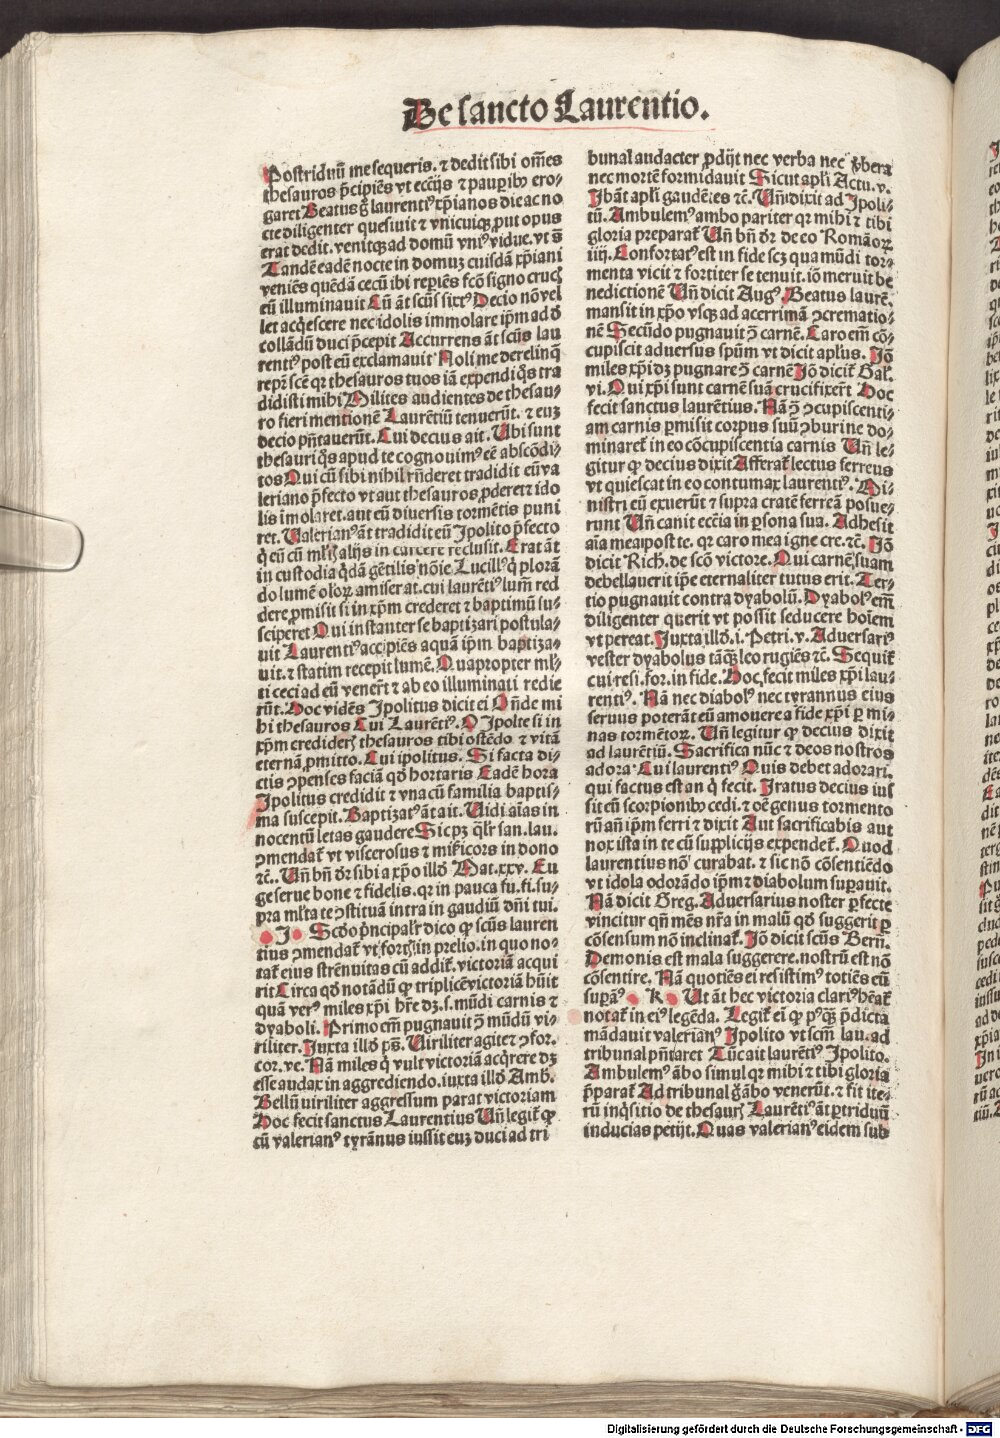 De sancto Laurentio.
Post triduū me sequeris. ⁊ dedit sibi om̄es
thesauros p̄cipiēs vt ecc̄ijs ⁊ paup̲ibꝰ ero⸗
garet Beatus g̊ laurentiꝰ xp̄ianos die ac no
cte diligenter quesiuit ⁊ vnicuiqꝫ put opus
erat dedit. venitqꝫ ad domū vniꝰ vidue. vt s̄
Tandē eadē nocte in domuꝫ cuiusdā xp̄iani
veniēs quēdā cecū ibi rep̲iēs fcō signo crucꝭ
eū illuminauit Cū āt scūs sixtꝰ Decio nō vel
let acq̇escere nec idolis immolare ip̄m ad d̄
collādū duci p̄cepit Accurrens āt scūs lau
rentiꝰ post eū exclamauit Noli me derelinq̄
repꝛ̄ scē qꝛ thesauros tuos iā expendi q̇s tra
didisti mihi Milites audientes de thesau⸗
ro fieri mentionē Laurētiū tenuerūt. ⁊ euꝫ
decio pn̄tauerūt. Cui decius ait. Ubi sunt
thesauri q̇s apud te cognouimꝰ eē abscōdi⸗
tos Qui cū sibi nihil rn̄deret tradidit eū va
leriano p̄fecto vt aut thesauros ꝓderet ⁊ ido
lis īmolaret. aut eū diuersis tormētis puni
ret. Valerianꝰ āt tradidit eū Ipolito p̄fecto
q̇ eū cū ml̓tꝭ alijs in carcere reclusit. Erat āt
in custodia q̇dā gētilis nōie Lucillꝰ q̇ plorā
do lumē oloꝝ amiserat. cui laurētiꝰ lum̄ red
dere ꝓmisit si in xp̄m crederet ⁊ baptimū su⸗
sciperet Qui instanter se baptizari postula⸗
uit Laurentiꝰ accipiēs aquā ip̄m baptiza⸗
uit. ⁊ statim recepit lumē. Quapropter ml̓⸗
ti ceci ad eū venerūt ⁊ ab eo illuminati redie
rūt. Hoc vidēs Ipolitus dicit ei Ondē mi
hi thesauros Cui Laurētiꝰ. O Ipolte si in
xp̄m crediderꝭ thesauros tibi ostēdo ⁊ vitā
eternā ꝓmitto. Cui ipolitus. Si facta di⸗
ctis ꝯpenses faciā qd̄ hortaris Eadē hora
Ipolitus credidit ⁊ vna cū familia baptis⸗
ma suscepit. Baptizatꝰ āt ait. Uidi aīas in
nocentū letas gaudere Sic pꝫ q̄lr̄ san. lau.
ꝯmendat̄ vt viscerosus ⁊ mīs̄icors in dono
⁊c̄.. Un̄ bn̄ dr̄ sibi a xp̄o illd̄ Mat. xxv. Eu
ge serue bone ⁊ fidelis. qꝛ in pauca fu. fi. su⸗
pra ml̓ta te ꝯstituā intra in gaudiū dn̄i tui.
I Scd̄o pn̄cipalr̄ dico ꝙ scūs lauren
tius ꝯmendat̄ vt fortꝭ in prelio. in quo no⸗
tat̄ eius strēnuitas cū addit̄. victoriā acqui
rit Circa qd̄ notādū ꝙ triplicē victoriā hūit
quā verꝰ miles xp̄i hr̄e dꝫ. s. mūdi carnis ⁊
dyaboli. Primo em̄ pugnauit ꝯ̄ mūdū vi⸗
riliter. Iuxta illd̄ pš. Uiriliter agite ⁊ ꝯfor.
cor. ve. Nā miles q̇ vult victoriā acq̇rere dꝫ
esse audax in aggrediendo. iuxta illd̄ Amb.
Bellū viriliter aggressum parat victoriam
Hoc fecit sanctus Laurentius Un̄ legit̄ ꝙ
cū valerianꝰ tyrānus iussit euꝫ duci ad tri
bunal audacter ꝓdijt nec verba nec v̓bera
nec mortē formidauit Sicut apl̓i Actu. v.
Ibāt apl̓i gaudētes ⁊c̄. Un̄ dixit ad Ipoli⸗
tū. Ambulemꝰ ambo pariter qꝛ mihi ⁊ tibi
gloria preparat̄ Un̄ bn̄ dr̄ de eo Romāoꝝ
iiij. Confortatꝰ est in fide scꝫ qua mūdi tor⸗
menta vicit ⁊ fortiter se tenuit. iō meruit be
nedictionē Un̄ dicit Augꝰ. Beatus laurē.
mansit in xp̄o vsqꝫ ad acerrimā ꝯcrematio⸗
nē Secūdo pugnauit ꝯ̄ carnē. Caro em̄ cō⸗
cupiscit aduersus spūm vt dicit apl̓us. Iō
miles xp̄i dꝫ pugnare ꝯ̄ carnē Iō dicit̄ Gal̓.
vi. Qui xp̄i sunt carnē suā crucifixer̄t Hoc
fecit sanctus laurētius. Nā ꝯ̄ ꝯcupiscenti⸗
am carnis ꝑmisit corpus suū ꝯburi ne do⸗
minaret̄ in eo cōcupiscentia carnis Un̄ le⸗
gitur ꝙ decius dixit Afferat̄ lectus ferreus
vt quiescat in eo contumax laurentiꝰ. Mi⸗
nistri eū exuerūt ⁊ supra cratē ferreā posue⸗
runt Un̄ canit ecc̄ia in ꝑsona sua. Adhesit
aīa mea post te. qꝛ caro mea igne cre. ⁊c̄. Iō
dicit Rich. de scō victore. Qui carnē suam
debellauerit ip̄e eternaliter tutus erit. Ter⸗
tio pugnauit contra dyabolū. Dyabolꝰ em̄
diligenter querit vt possit seducere hoīem
vt pereat. Iuxta illd̄. i. Petri. v. Aduersariꝰ
vester dyabolus tāq̄ꝫ leo rugiēs ⁊c̄. Sequit̄
cui resi. for. in fide. Hoc fecit miles xp̄i lau⸗
rentiꝰ. Nā nec diabolꝰ nec tyrannus eius
seruus poterāt eū amouere a fide xp̄i ꝑ mi⸗
nas tormētoꝝ. Un̄ legitur ꝙ decius dixit
ad laurētiū. Sacrifica nūc ⁊ deos nostros
adora. Cui laurentiꝰ Quis debet adorari.
qui factus est an q̇ fecit. Iratus decius ius
sit eū scorpionibꝰ cedi. ⁊ oē genus tormento
rū an̄ ip̄m ferri ⁊ dixit Aut sacrificabis aut
nox ista in te cū supplicijs expendet̄. Quod
laurentius nō curabat. ⁊ sic nō cōsentiēdo
vt idola odorādo ip̄m ⁊ diabolum suꝑauit.
Nā dicit Greg. Aduersarius noster ꝑfecte
vincitur qn̄ mēs nr̄a in malū qd̄ suggerit ꝑ
cōsensum nō inclinat̄. Iō dicit scūs Bern̄.
Demonis est mala suggerere. nostrū est nō
cōsentire. Nā quotiēs ei resistimꝰ totiēs eū
suꝑāꝰ K Ut āt hec victoria clariꝰ hēat̄
notat̄ in eiꝰ legēda. Legit̄ ei ꝙ pꝰq̄ꝫ p̄dicta
mādauit valerianꝰ Ipolito vt scm̄ lau. ad
tribunal pn̄taret Tūc ait laurētiꝰ Ipolito.
Ambulemꝰ ābo simul qꝛ mihi ⁊ tibi gloria
p̄parat̄ Ad tribunal g̊ ābo venerūt. ⁊ fit ite⸗
rū inq̇sitio de thesaurꝭ Laurētiꝰ āt ꝑ triduū
inducias petijt. Quas valerianꝰ eidem sub
Digitalisierung gefördert durch die Deutsche Forschungsgemeinschaft - DFG